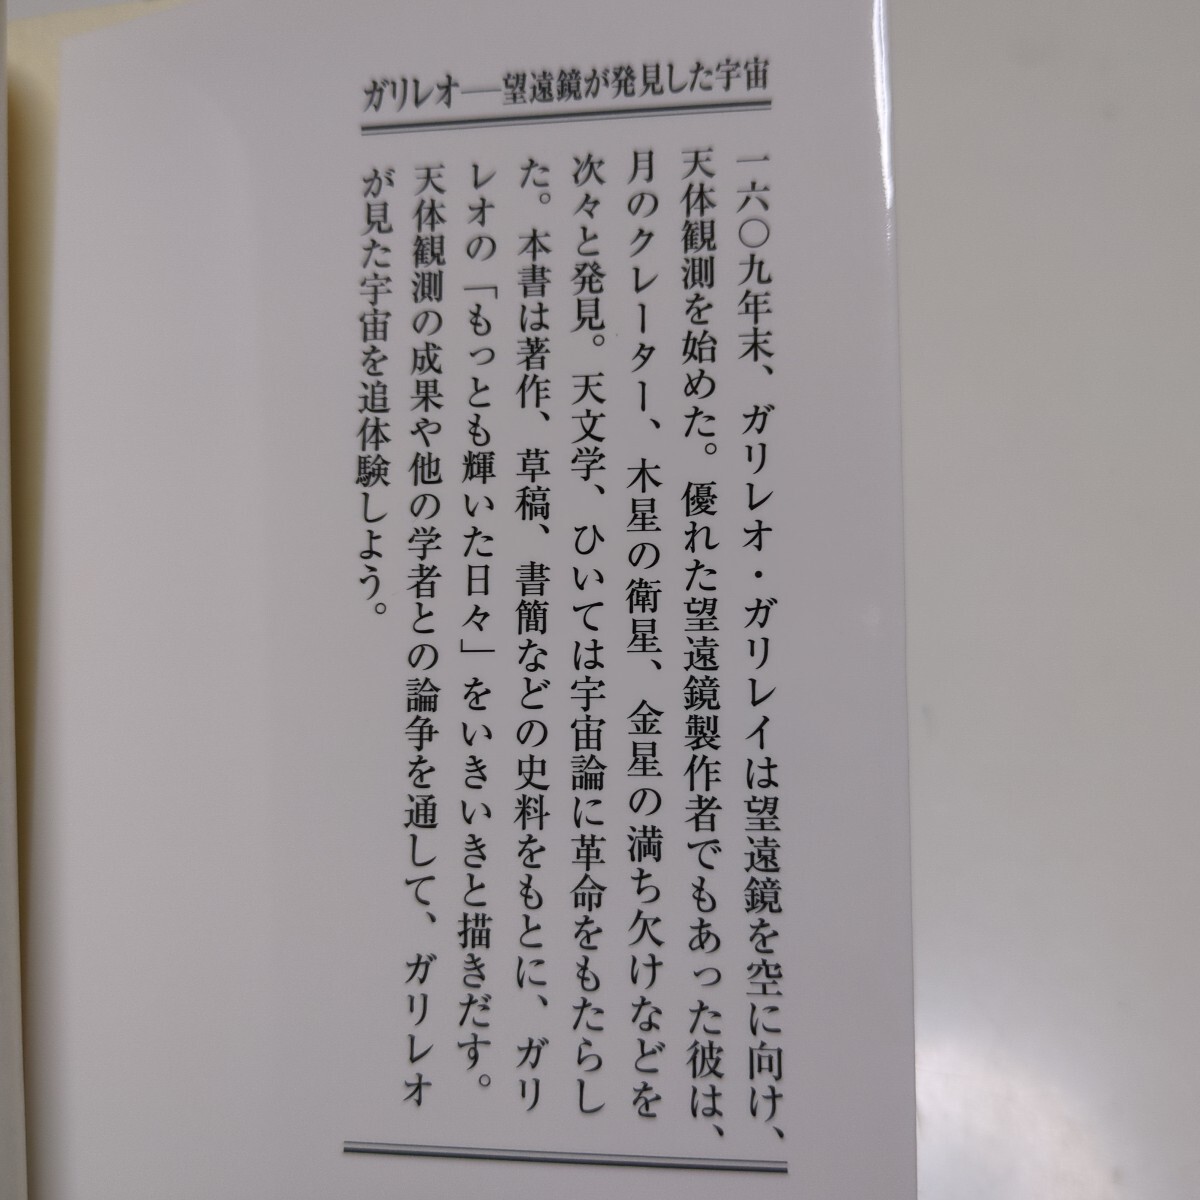 ガリレオ──望遠鏡が発見した宇宙
一六〇九年末、ガリレオ・ガリレイは望遠鏡を空に向け、
天体観測を始めた。優れた望遠鏡製作者でもあった彼は、
月のクレーター、木星の衛星、金星の満ち欠けなどを
次々と発見。天文学、ひいては宇宙論に革命をもたらし
た。本書は著作、草稿、書簡などの史料をもとに、ガリ
レオの「もっとも輝いた日々」をいきいきと描きだす。
天体観測の成果や他の学者との論争を通して、ガリレオ
が見た宇宙を追体験しよう。